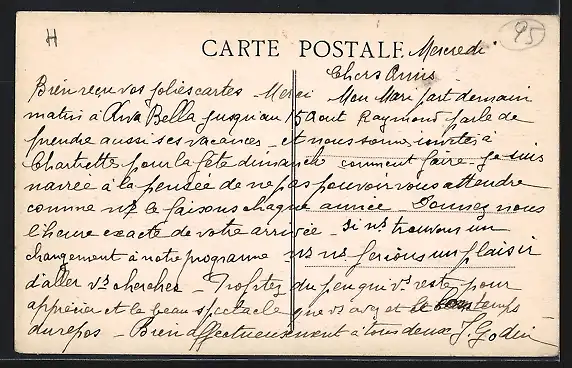 H
95
CARTE POSTALE
Mercredi
Chers Amis
Bien reçu vos jolies cartes - Merci Mon Mari part demain
matin à Riva Bella jusqu'au 15 Aout Raymond parle de
prendre aussi ses vacances - et nous sommes invités à
Chartrettes pour la fête dimanche comment faire - Je suis
navrée à la pensée de ne pas pouvoir vous attendre
comme ns le faisons chaque année - Donnez nous
l'heure exacte de votre arrivée - Si ns trouvons un
changement à notre programme ns ns ferions un plaisir
d'aller vs chercher - Profitez du peu qui vs reste pour
apprécier et le beau spectacle que vs avez et le temps
du repos - Bien affectueusement à tous deux J. Godin